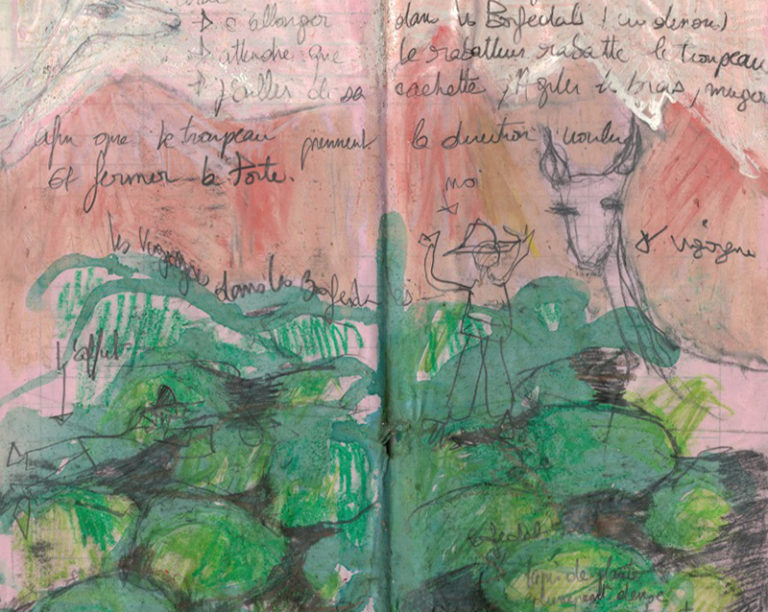 → s'allonger dans les Bofedals (ou derrière)
→ attendre que le rabatteur rabatte le troupeau
→ jaillir de sa cachette, agiter les bras, mugir
afin que le troupeau prennent la direction voulue
Et fermer la Porte.
moi
vigogne
les vigognes dans les Bofedals
l'affut
bofedals
tapis de plante